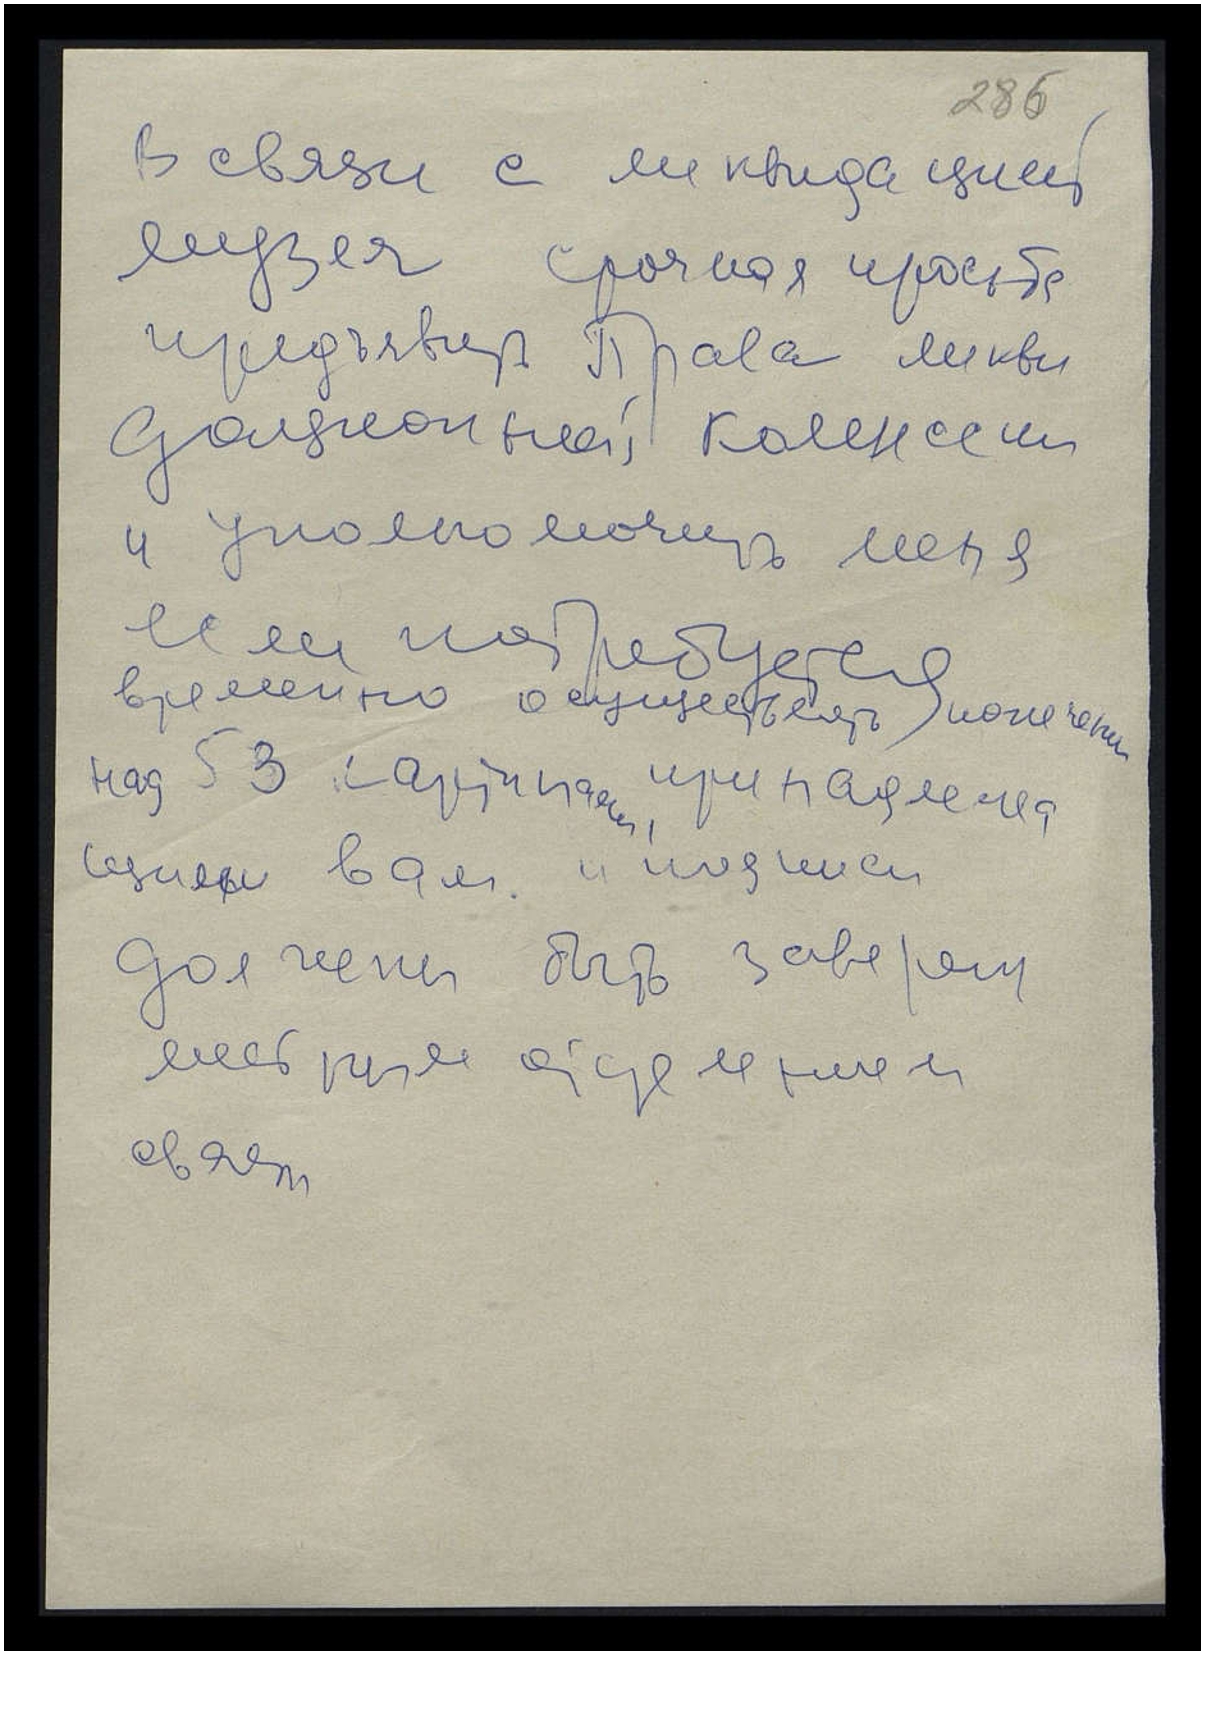 286
В связи с ликвидацией
музея срочная просьба
предъявить Права ликви
дационной комиссии
и уполномочить меня
если потребуется
временно осуществлять попечение
над 53 картинами, принадлежа
щими вам. и подписи
должены быть заверены
местным отделением
связи